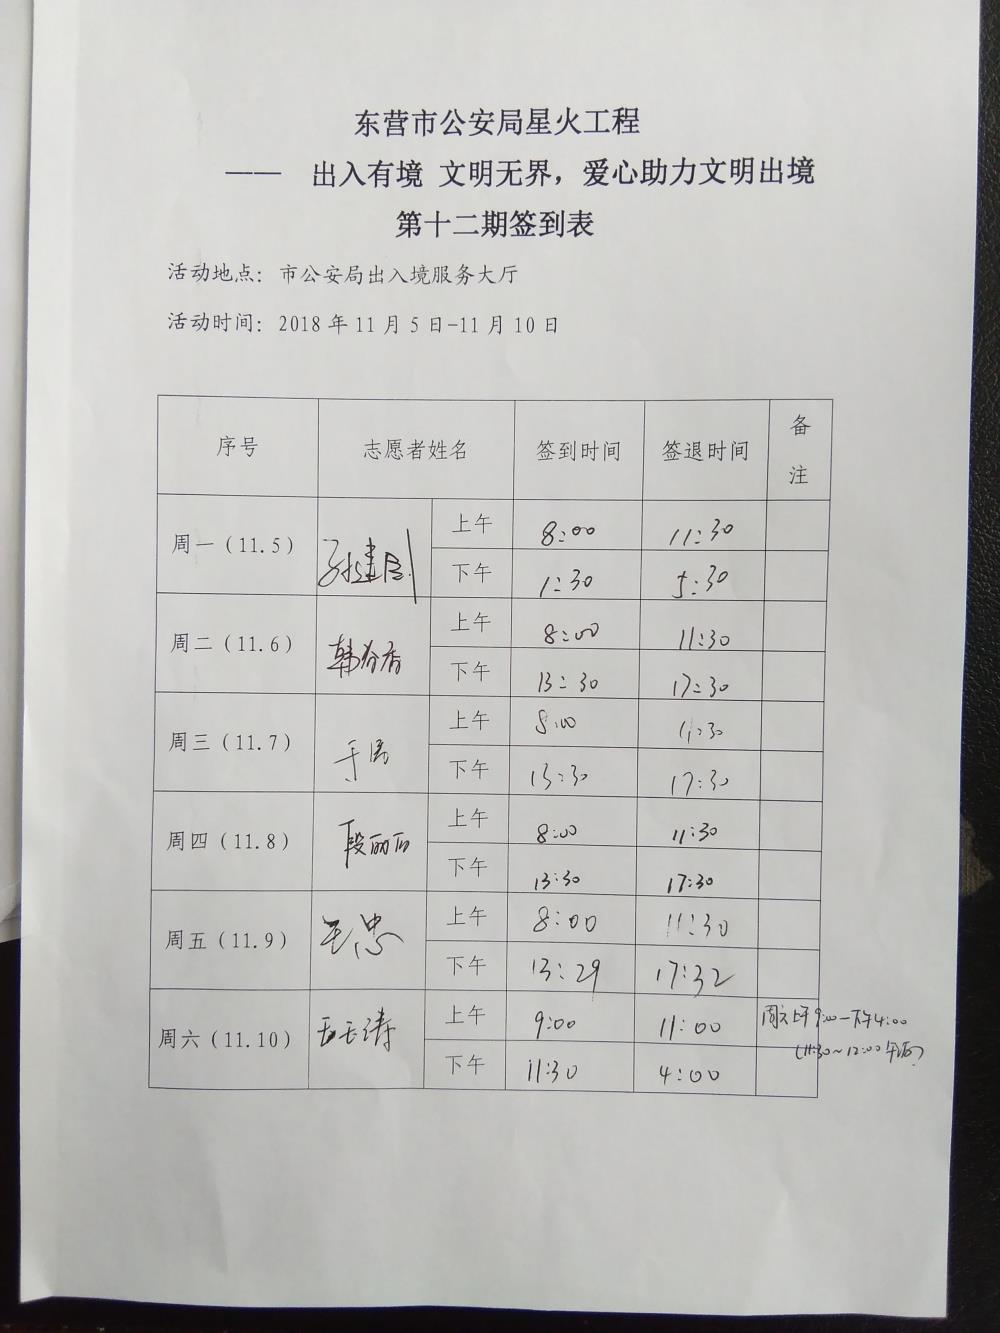 东营市公安局星火工程
—— 出入有境 文明无界，爱心助力文明出境
第十二期签到表
活动地点：市公安局出入境服务大厅
活动时间：2018年11月5日-11月10日
序号 志愿者姓名 签到时间 签退时间 备注
周一（11.5） 上午 8:00 11:30
下午 1:30 5:30
周二（11.6） 上午 8:00 11:30
下午 13:30 17:30
周三（11.7） 上午 8:00 11:30
下午 13:30 17:30
周四（11.8） 段丽 上午 8:00 11:30
下午 13:30 17:30
周五（11.9） 王忠 上午 8:00 11:30
下午 13:29 17:32
周六（11.10） 上午 9:00 11:00 周六上午9:00—下午4:00
下午 11:30 4:00 (11:30~12:00午饭)